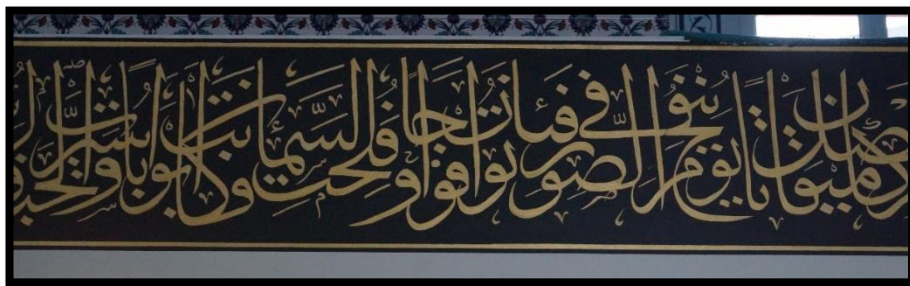 كان ميقاتا يوم ينفخ في الصور فتأتون أفواجا وفتحت السماء فكانت أبوابا وسيرت الجبال